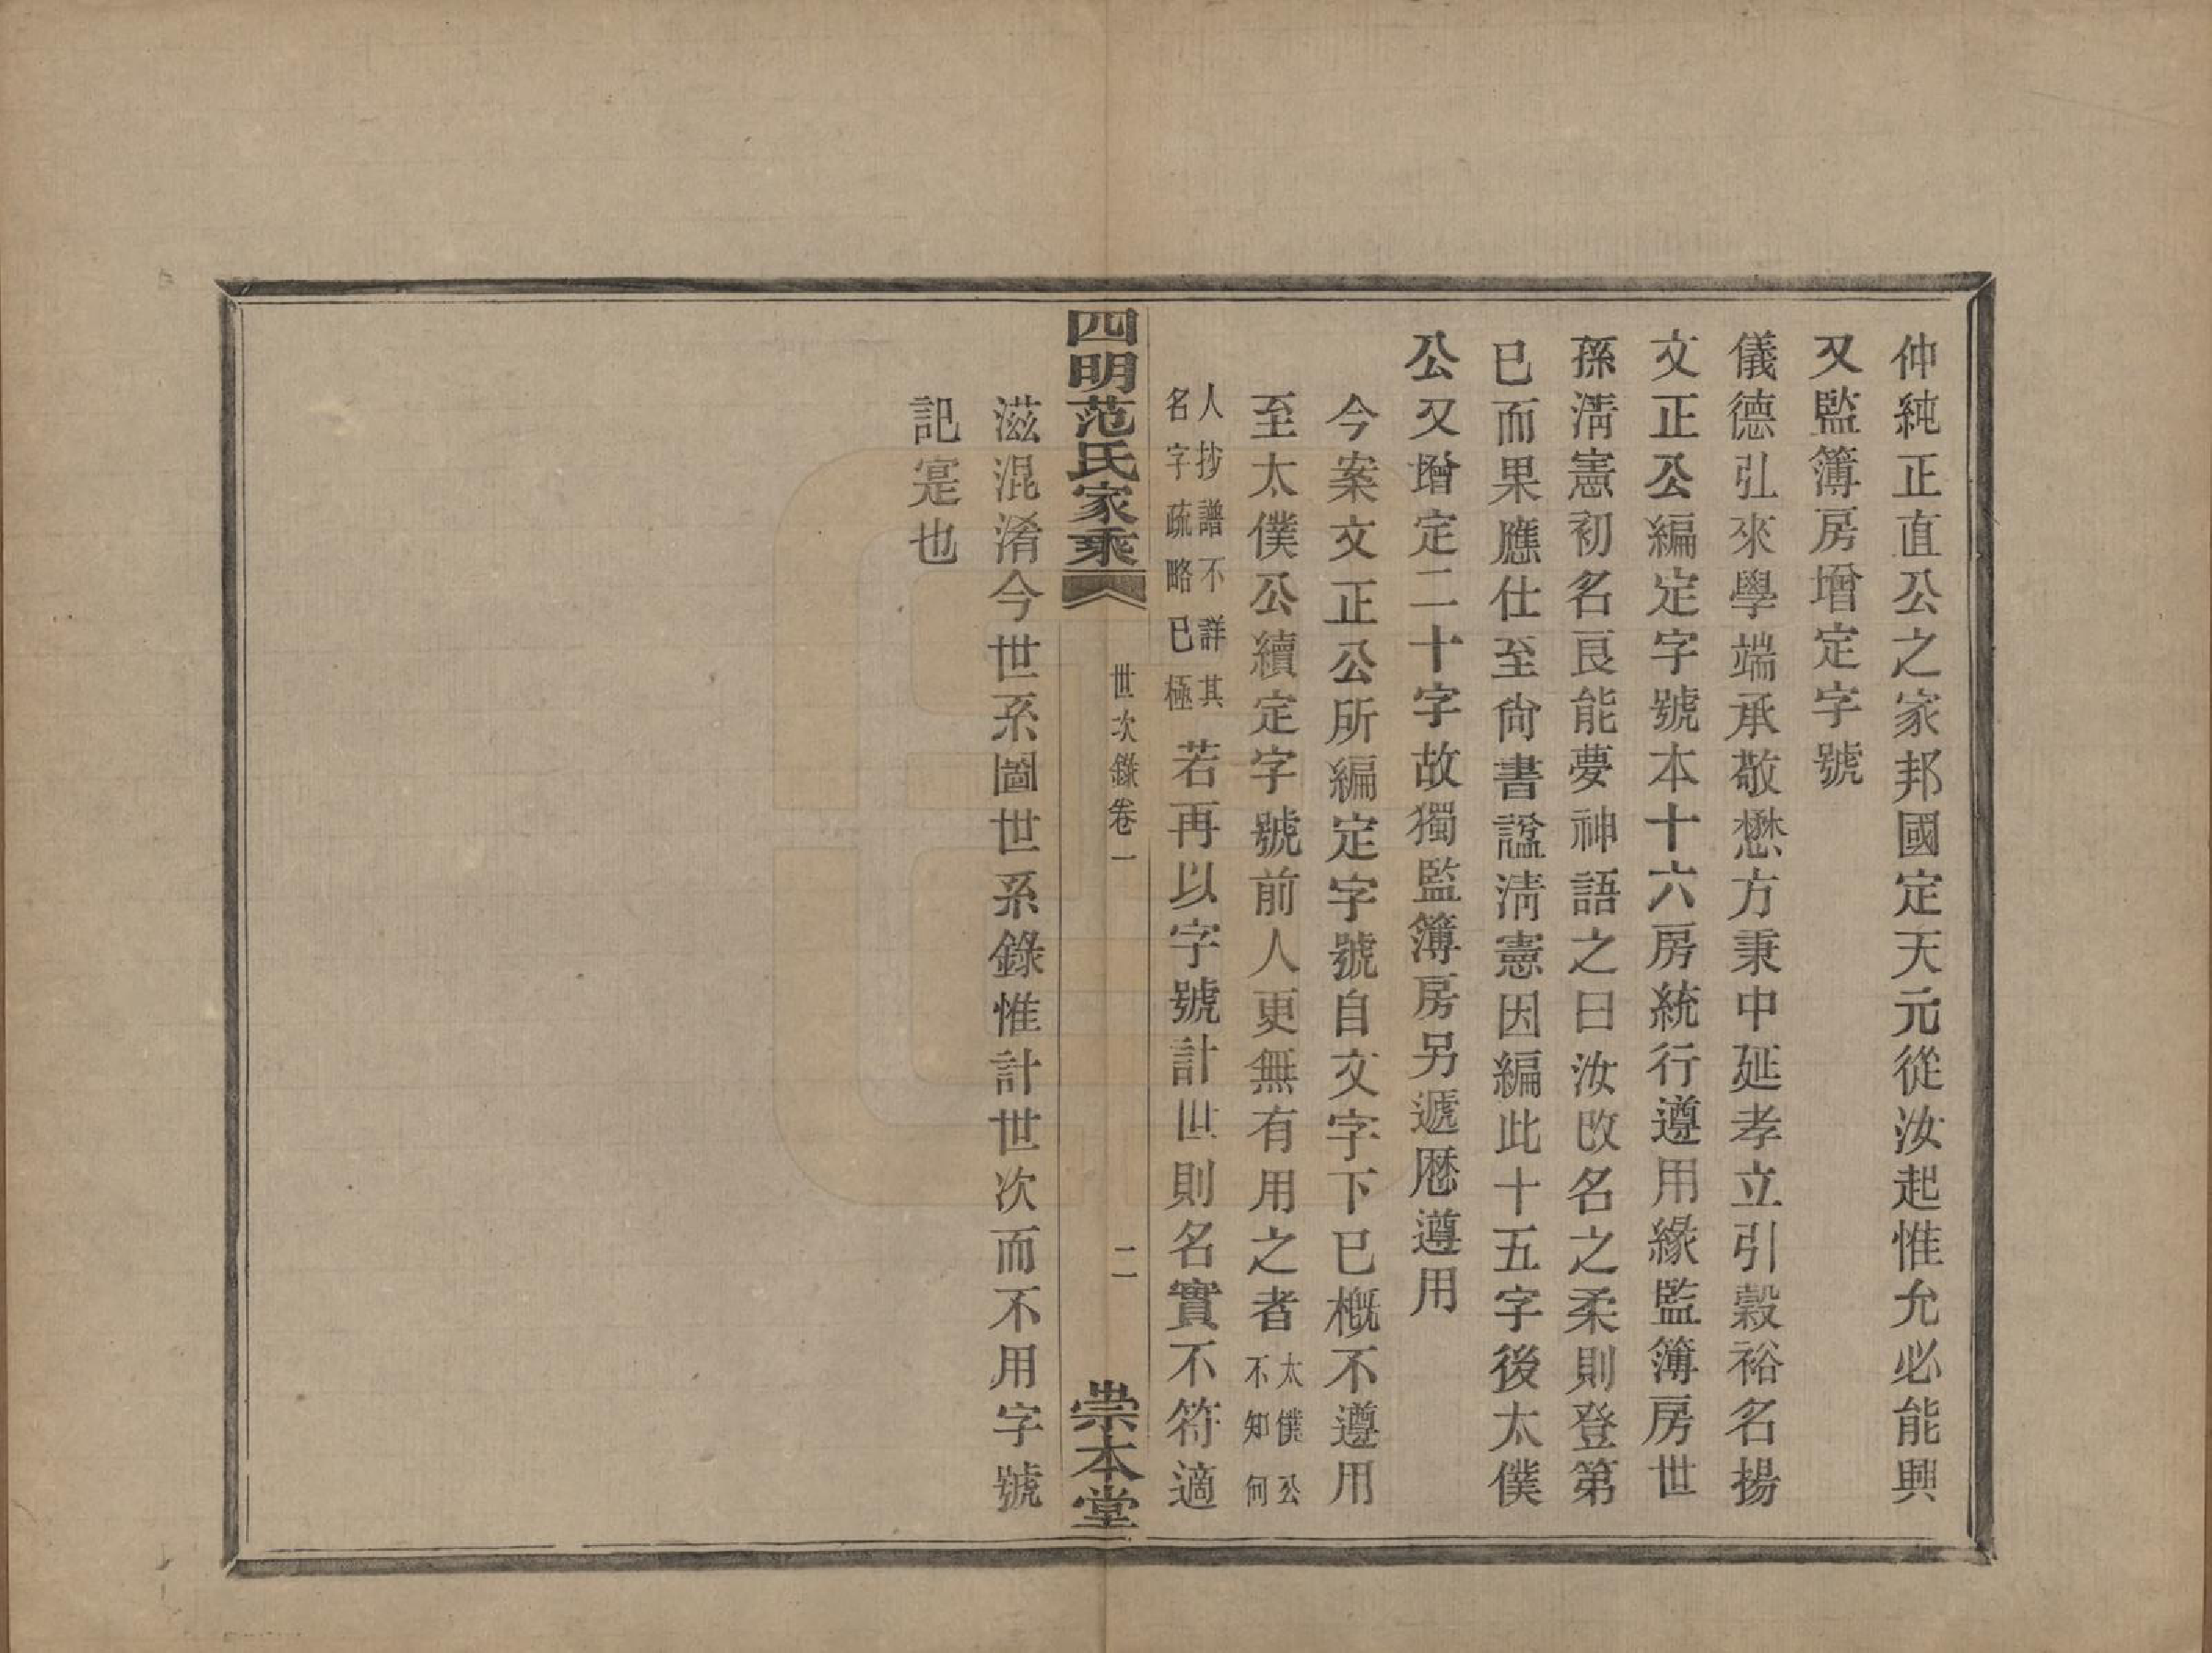 仲純正直公之家邦國定天元從汝起惟允必能興
又監簿房增定字號
儀德弘來學端承敬懋方秉中延孝立引穀裕名揚
文正公編定字號本十六房統行遵用緣監簿房世
孫淸憲初名良能夢神語之曰汝改名之柔則登第
已而果應仕至尙書諡淸憲因編此十五字後太僕
公又增定二十字故獨監簿房另遞歷遵用
今案文正公所編定字號自文字下已槪不遵用
至太僕公續定字號前人更無有用之者太僕公不知何
人抄譜不詳其名字疏略已極若再以字號計世則名實不符適
四明范氏家乘 世次錄卷一 二 崇本堂
滋混淆今世系圖世系錄惟計世次而不用字號
記寔也